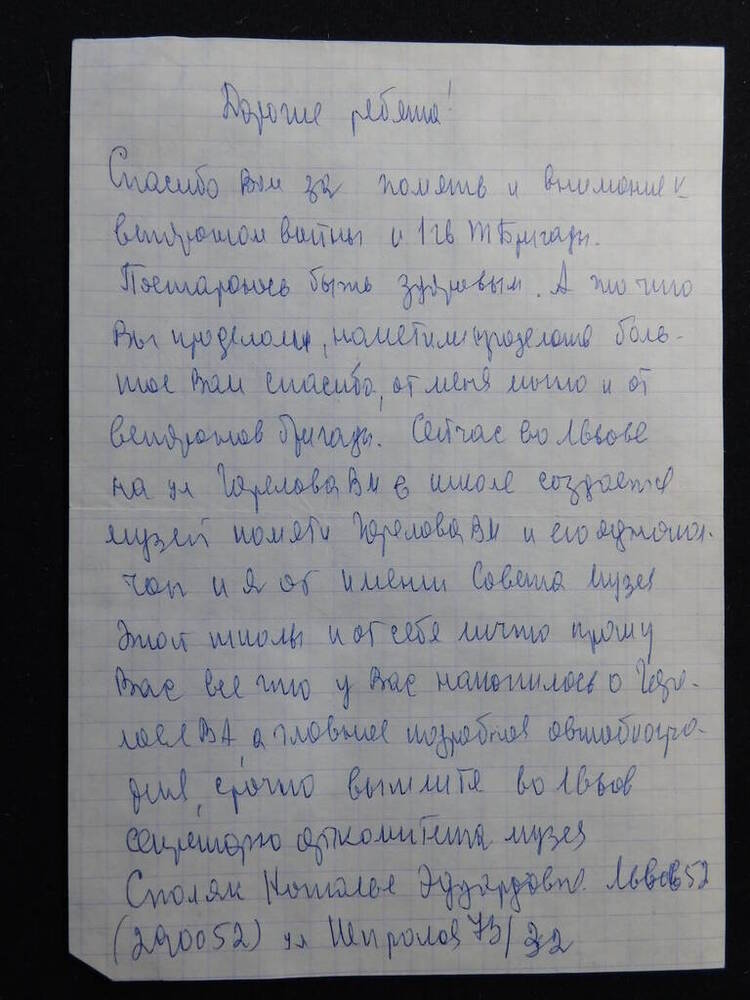 Дорогие ребята!
Спасибо Вам за память и внимание к
ветеранам войны и 1 гв Т Бригады.
Постараюсь быть здоровым. А то что
Вы проделали, наметили проделать боль-
шое Вам спасибо, от меня лично и от
ветеранов бригады. Сейчас во Львове
на ул Горелова ВМ в школе создается
музей памяти Горелова ВМ и его однопол-
чан и я от имени Совета Музея
этой школы и от себя лично прошу
Вас все что у Вас накопилось о Горе-
лове ВА, а главное подробная автобиогра-
фия, срочно вышлите во Львов
секретарю оргкомитета музея
Споляк Наталье Эдуардовне. Львов 52
(290052) ул 73/32